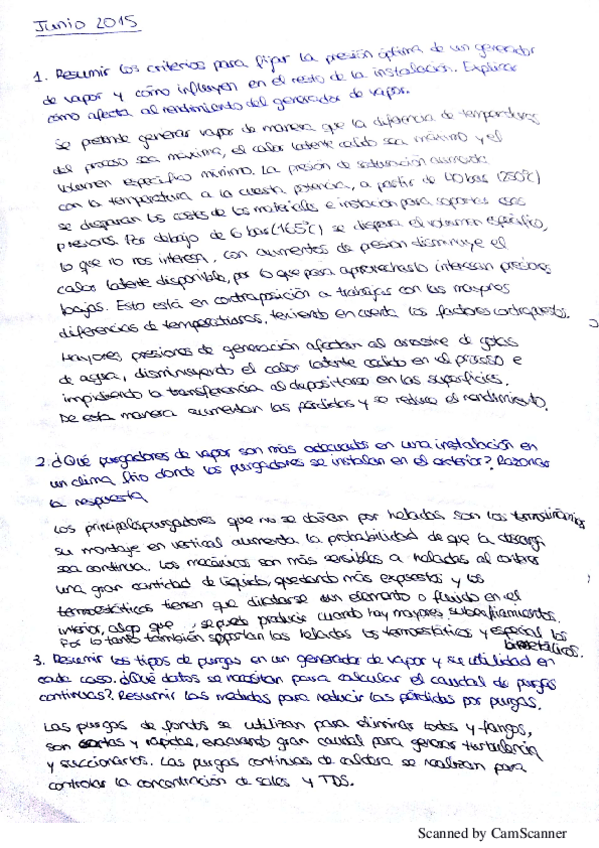 Junio 2015
1. Resumir los criterios para fijar la presión óptima de un generador
de vapor y cómo influyen en el resto de la instalación. Explicar
cómo afecta al rendimiento del generador de vapor.
Se pretende generar vapor de manera que la diferencia de temperaturas
del proceso sea máxima, el calor latente cedido sea máximo y el
volumen específico mínimo. La presión de saturación aumenta
con la temperatura a la cuarta potencia, a partir de 40 bar (250°C)
se disparan los costes de los materiales e instalación para soportar esas
presiones. Por debajo de 6 bar (165°C) se dispara el volumen específico,
lo que no nos interesa. Con aumentos de presión disminuye el
calor latente disponible, por lo que para aprovecharlo interesan presiones
bajas. Esto está en contraposición a trabajar con las mayores
diferencias de temperaturas, teniendo en cuenta los factores contrapuestos.
Mayores presiones de generación afectan al arrastre de gotas
de agua, disminuyendo el calor latente cedido en el proceso e
impidiendo la transferencia al depositarse en las superficies.
De esta manera aumentan las pérdidas y se reduce el rendimiento.
2. ¿Qué purgadores de vapor son más adecuados en una instalación en
un clima frío donde los purgadores se instalan en el exterior? Razonar
la respuesta
Los principales purgadores que no se dañan por heladas son los termodinámicos
su montaje en vertical aumenta la probabilidad de que la descarga
sea continua. Los mecánicos son más sensibles a heladas al contener
una gran cantidad de líquido, quedando más expuestos y los
termostáticos tienen que dilatarse un elemento o fluido en el
interior, algo que se puede producir cuando hay mayores subenfriamientos.
Por lo tanto también soportan las heladas los termostáticos y especial los
bimetálicos.
3. Resumir los tipos de purgas en un generador de vapor y su utilidad en
cada caso. ¿Qué datos se necesitan para calcular el caudal de purgas
continuas? Resumir las medidas para reducir las pérdidas por purgas.
Las purgas de fondos se utilizan para eliminar lodos y fangos,
son cortas y rápidas, evacuando gran caudal para generar turbulencia
y succionarlos. Las purgas continuas de caldera se realizan para
controlar la concentración de sales y TDS.
Scanned by CamScanner